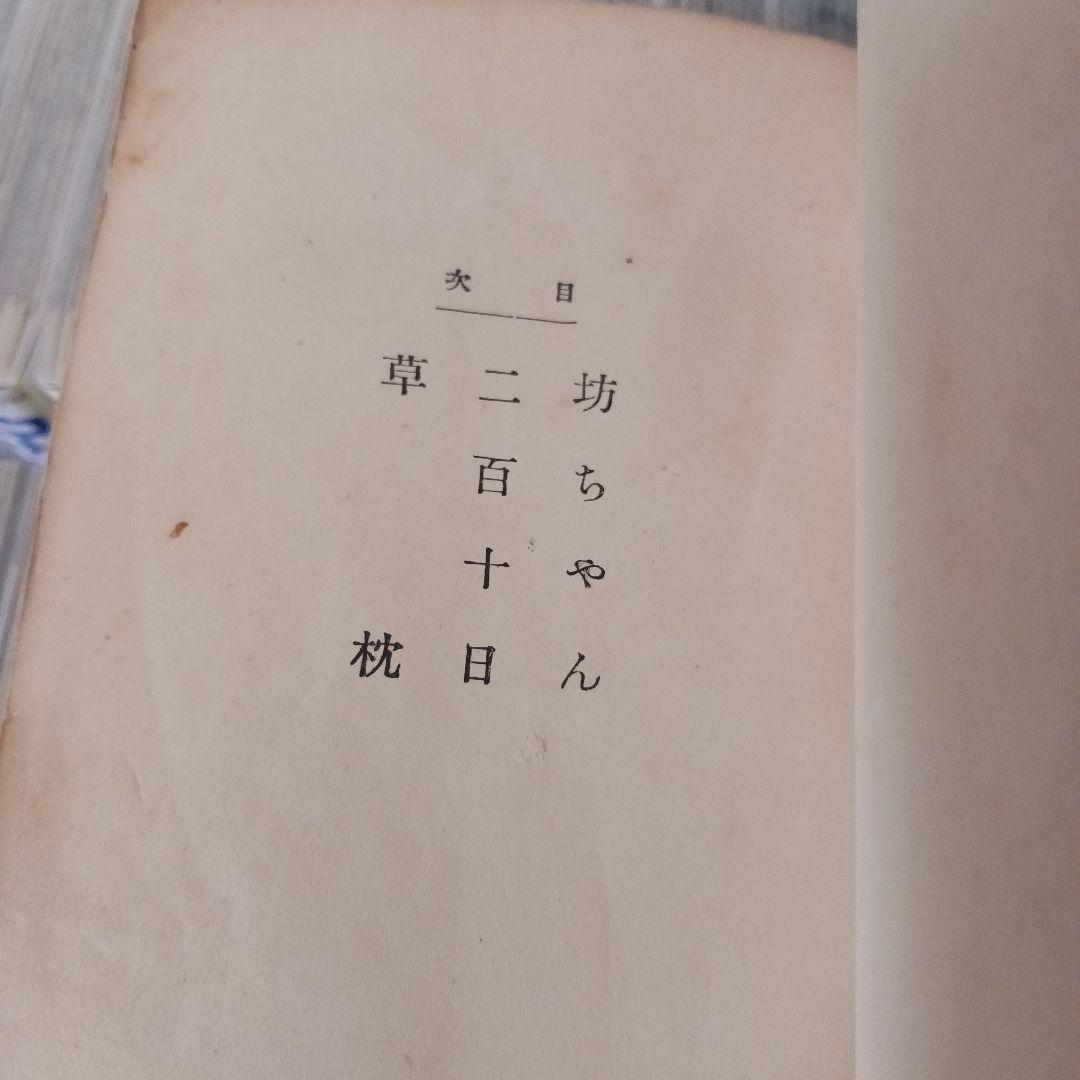 目次
坊ちやん
二百十日
草枕